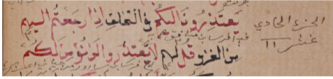 يعتذرون اليكم في التخلف اذا رجعتم اليهم
من الغزو قل لهم لا تعتذروا لن نؤمن لكم
الجزء الحادي
عشر ١١